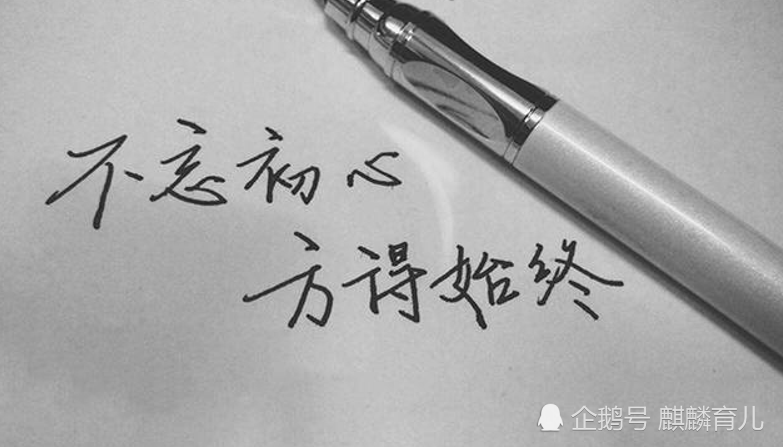 不忘初心
方得始终
企鹅号 麒麟育儿